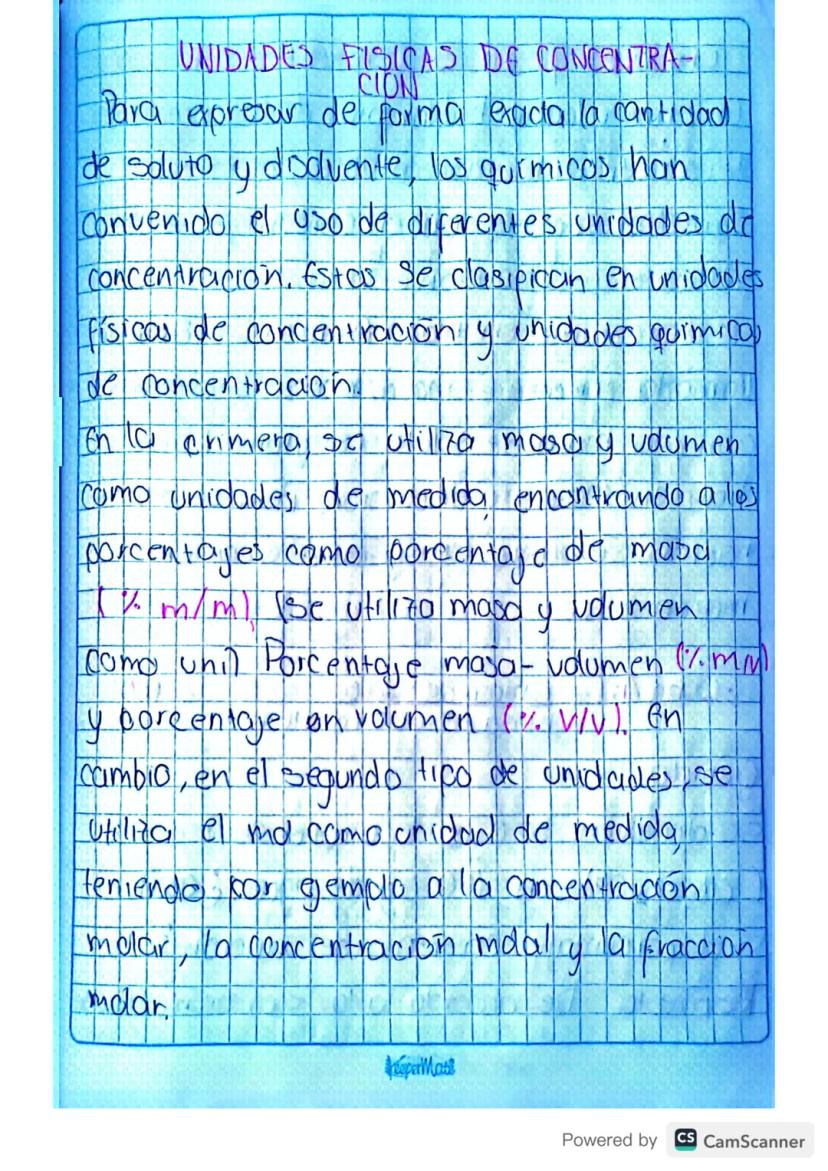 UNIDADES FISICAS DE CONCENTRA-
CION
Para expresar de forma exacta la cantidad
de soluto y disolvente, los químicos han
convenido el uso de diferentes unidades de
concentración. Estas se clasifican en unidades
físicas de concentración y unidades químicas
de concentración.
En la primera, se utiliza masa y volumen
como unidades de medida, encontrando a los
porcentajes como porcentaje de masa
(% m/m), (se utiliza masa y volumen
como uni) Porcentaje masa- volumen (% m/v)
y porcentaje en volumen (% v/v). En
cambio, en el segundo tipo de unidades, se
utiliza el mol como unidad de medida,
teniendo por ejemplo a la concentración
molar, la concentración molal y la fracción
molar.
Powered by CS CamScanner